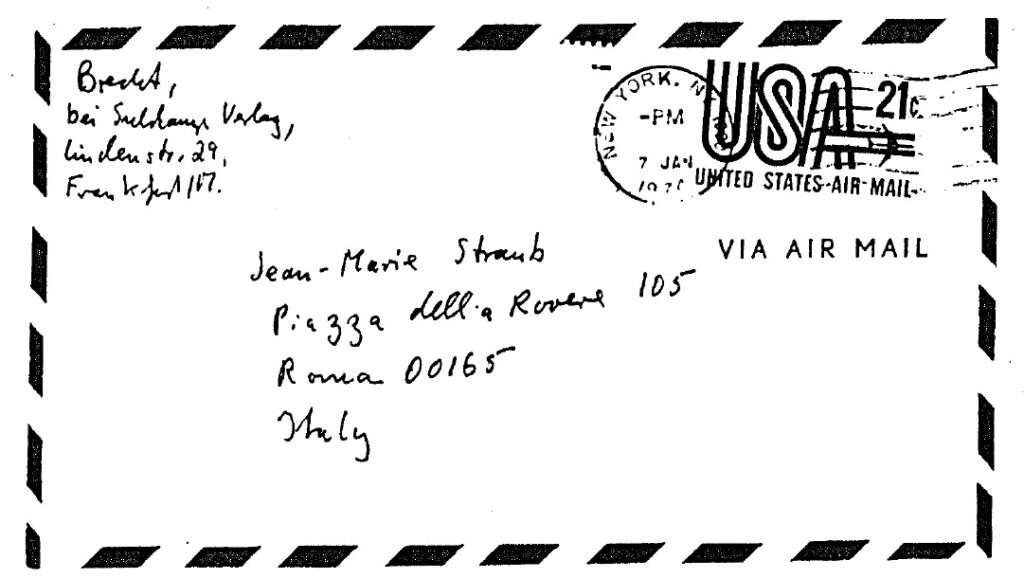 Brecht,
bei Suhrkamp Verlag,
Lindenstr. 29,
Frankfurt/M.
NEW YORK, N.Y.
-PM
7 JAN
USA 21c
UNITED STATES-AIR MAIL
VIA AIR MAIL
Jean-Marie Straub
Piazza della Rovere 105
Roma 00165
Italy